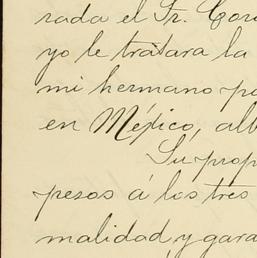 rada el Sr. Cor
yo le tratara la
mi hermano pa
en Méjico, alb
Su prop
pesos á los tres
malidad y gara